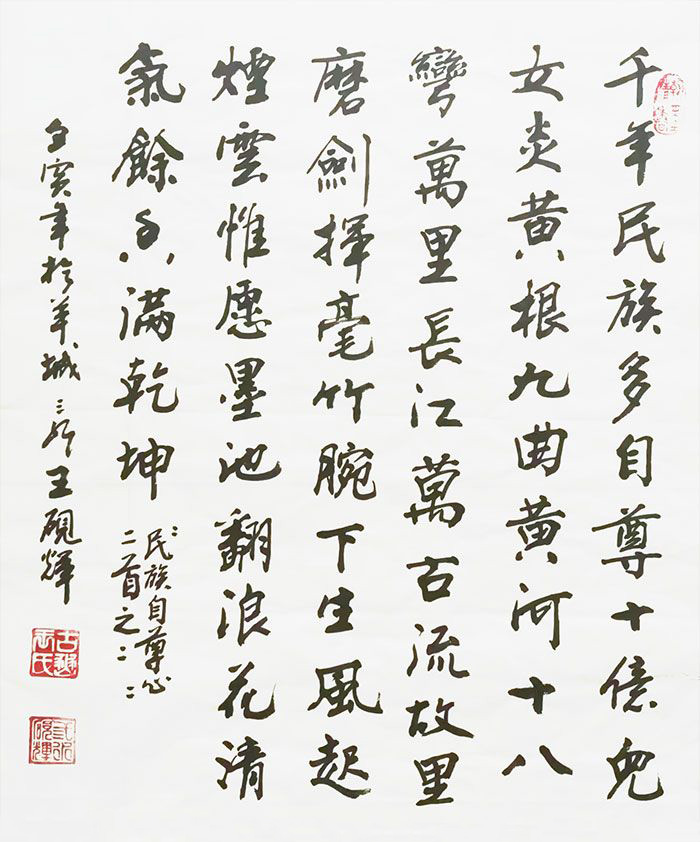 千年民族多自尊十億兒
女炎黄根九曲黄河十八
彎萬里長江萬古流故里
磨劍揮毫竹腕下生風起
煙雲惟愿墨池翻浪花清
氣餘香滿乾坤
民族自尊心
二首之二
壬寅年於羊城三郎王硯輝